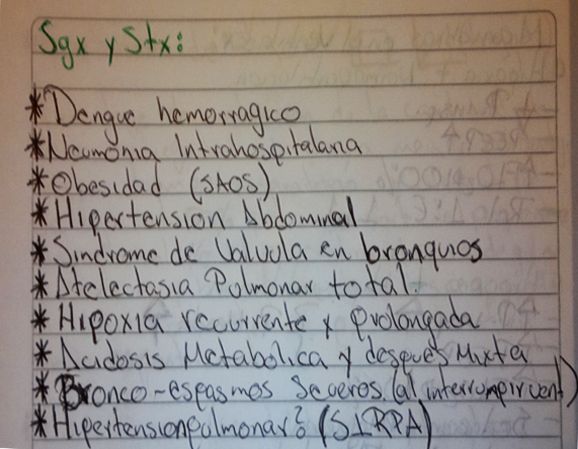 Sgx y Stx:
*Dengue hemorragico
*Neumonia Intrahospitalaria
*Obesidad (SAOS)
*Hipertension Abdominal
*Sindrome de Valvula en bronquios
*Atelectasia Pulmonar total
*Hipoxia recurrente y prolongada
*Acidosis Metabolica y despues Mixta
*Bronco-espasmos severos (al interrumpir vent)
*Hipertension pulmonar? (SIRPA)